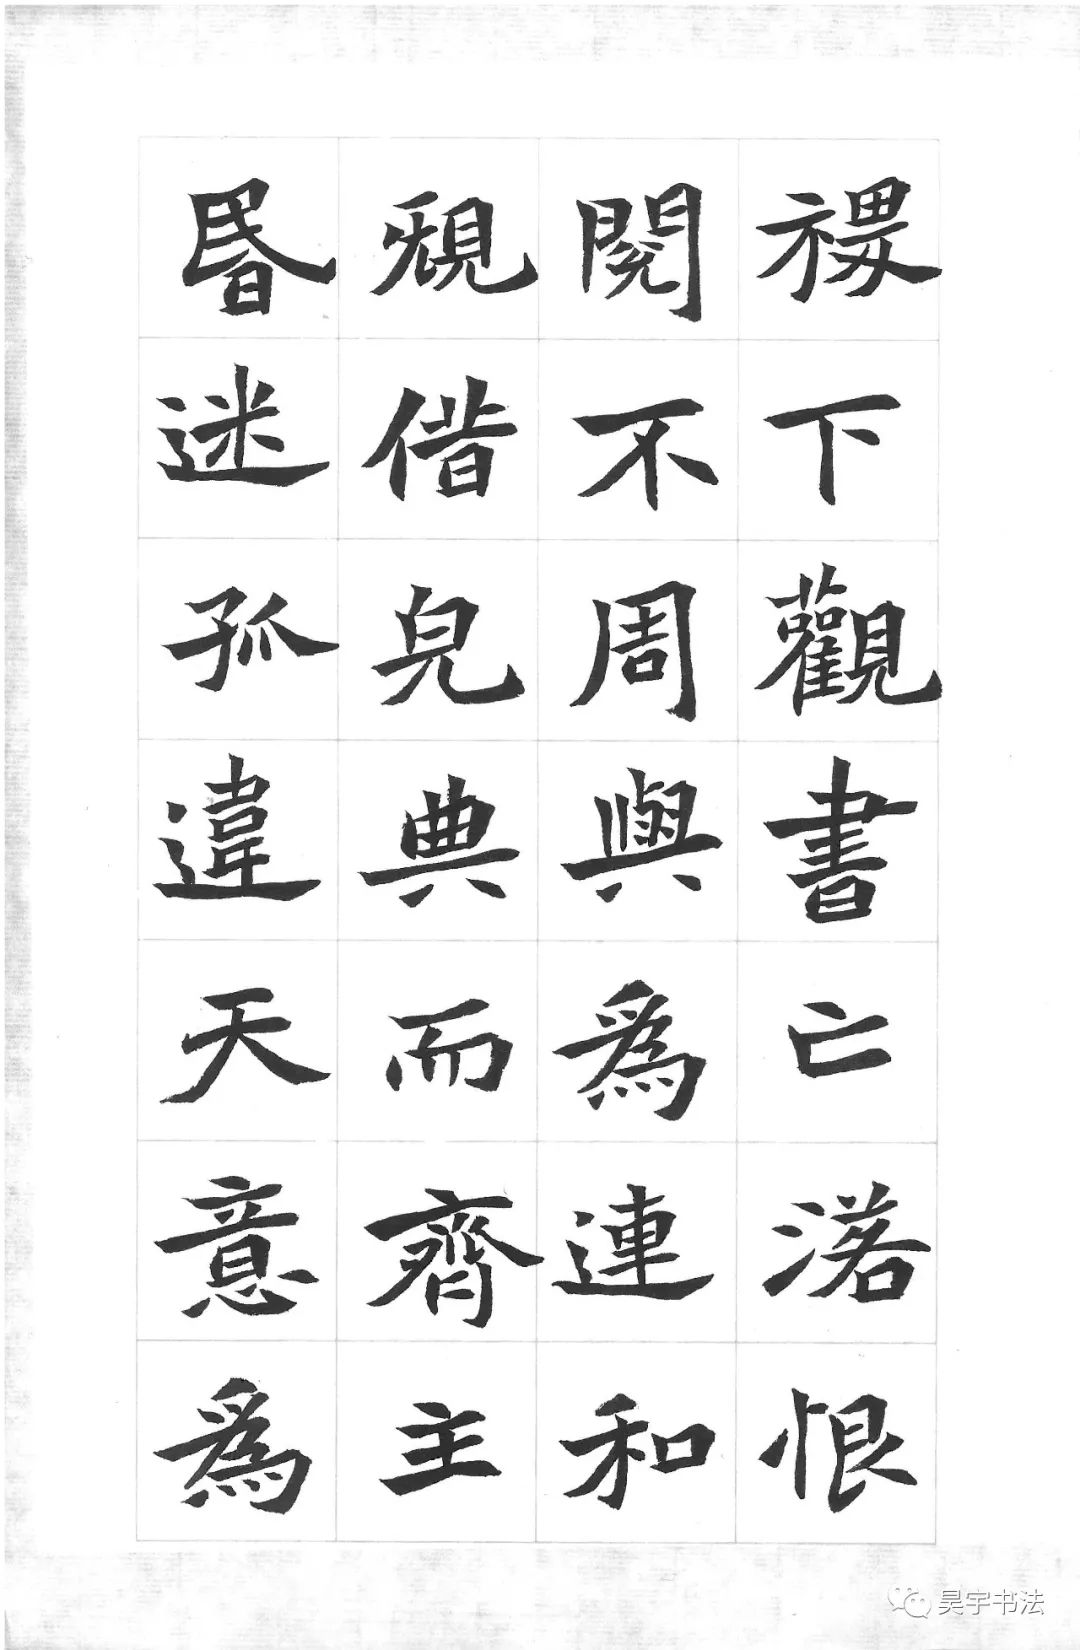 稷下觀書亡落恨
閱不周與爲連和
覛偕皃典而齊主
昬迷孤違天意爲
昊宇书法